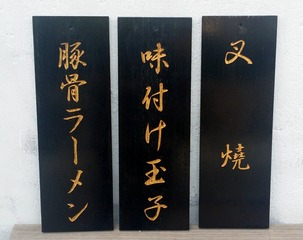 豚骨ラーメン
味付け玉子
叉燒